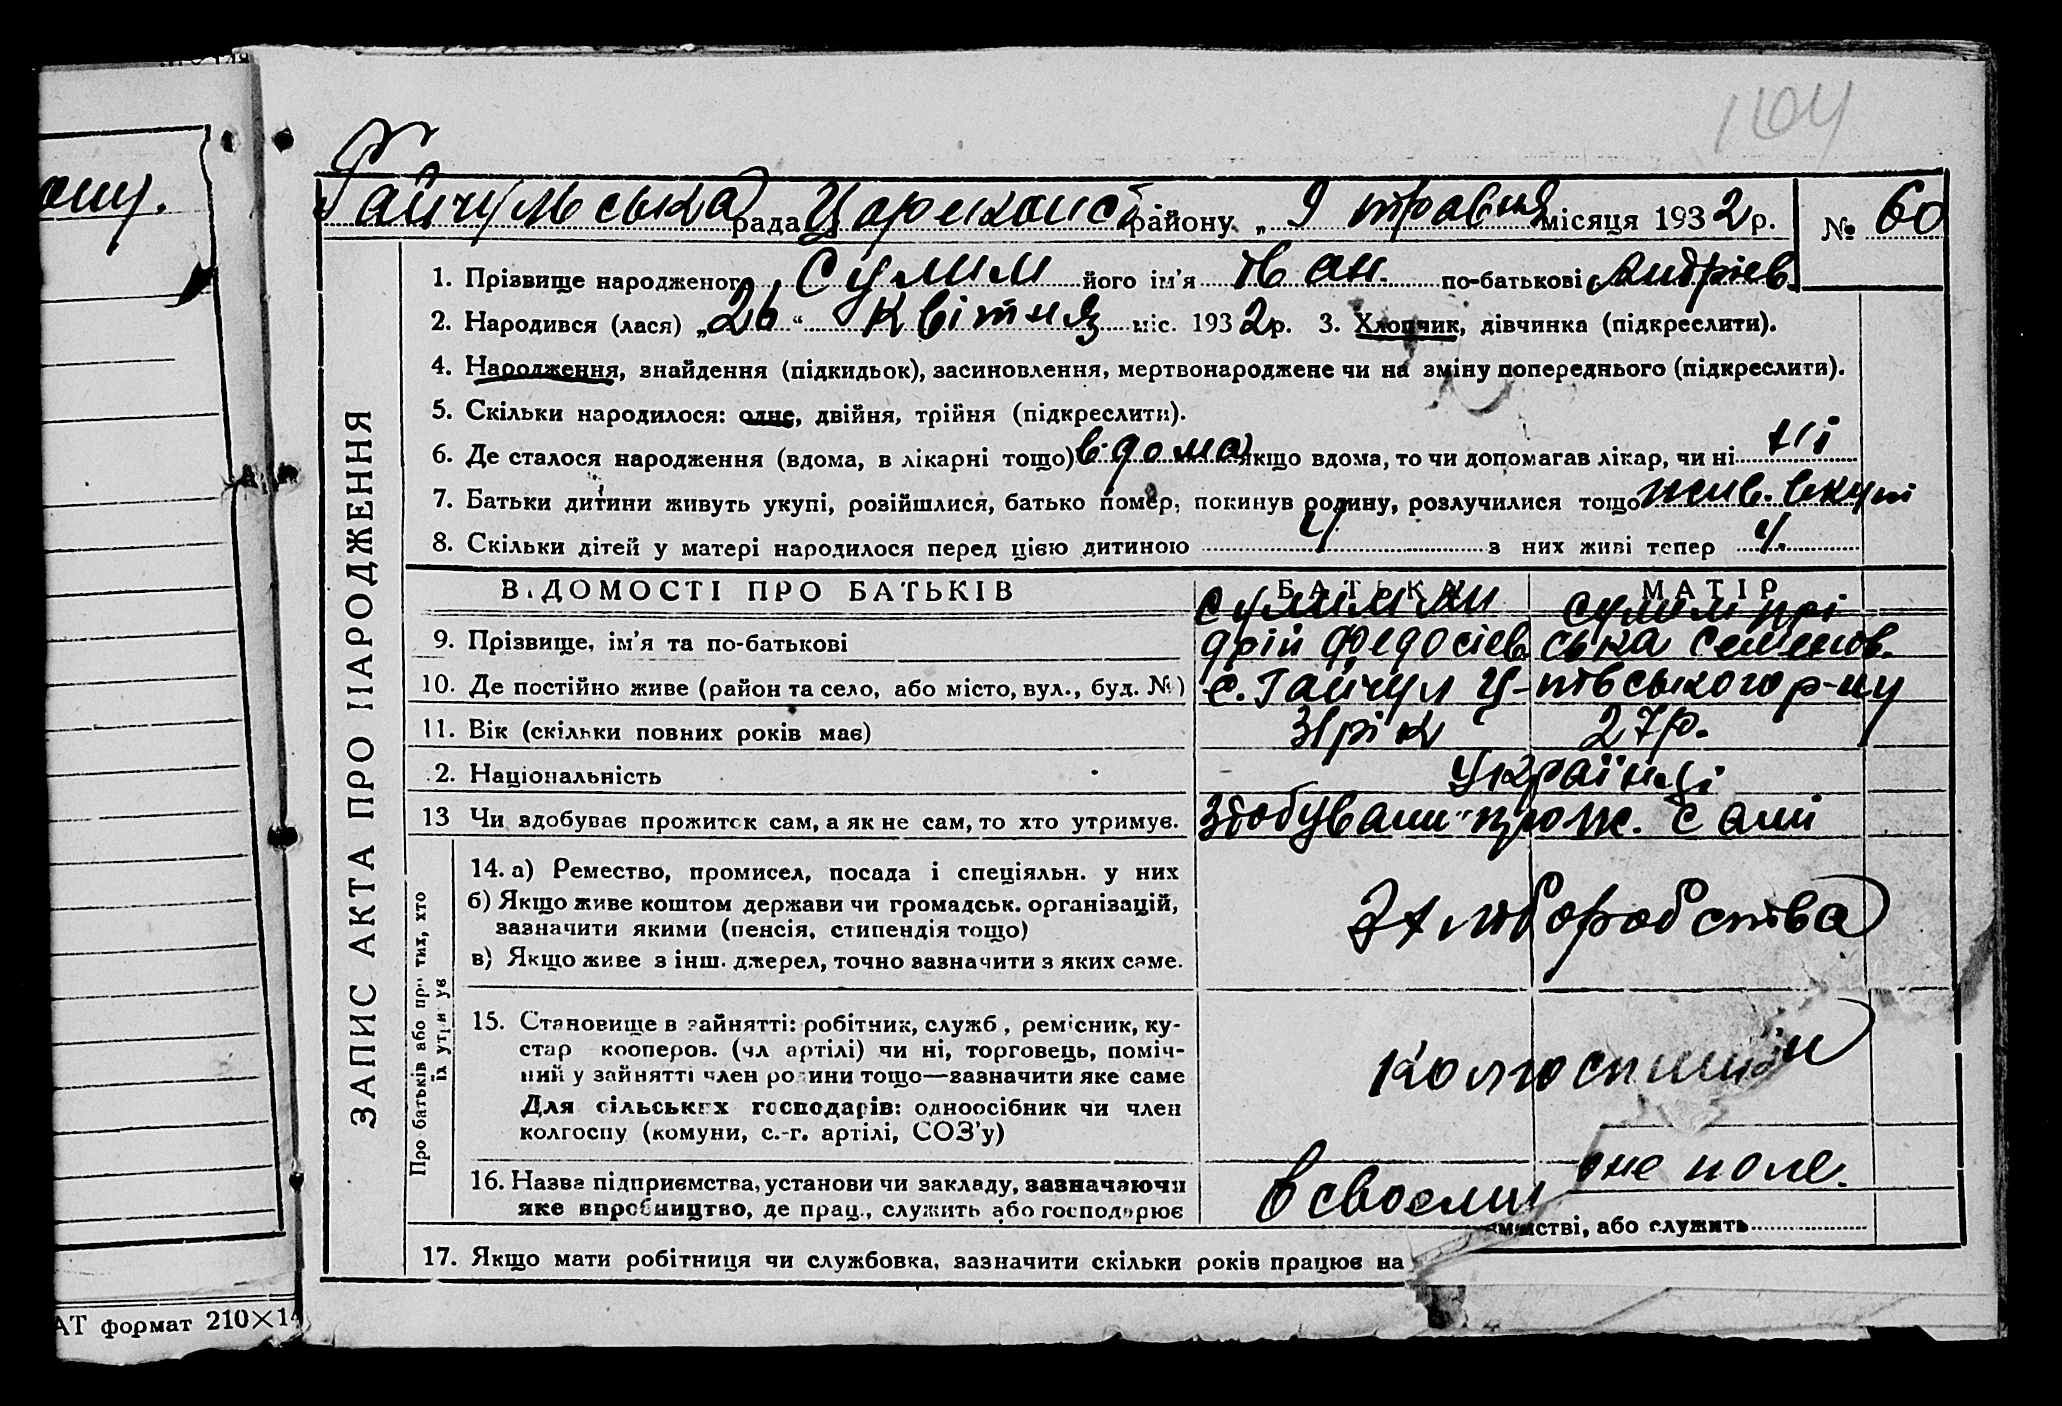 104
Гайчульська рада Царекост району „ 9 травня місяця 1932 р. № 60
ЗАПИС АКТА ПРО НАРОДЖЕННЯ
1. Прізвище народженого Сулим його ім'я Іван. по-батькові Андріев
2. Народився (лася) „26“ квітня міс. 1932 р. 3. Хлопчик, дівчинка (підкреслити).
4. Народження, знайдення (підкидьок), засиновлення, мертвонароджене чи на зміну попереднього (підкреслити).
5. Скільки народилося: одне, двійня, трійня (підкреслити).
6. Де сталося народження (вдома, в лікарні тощо) вдома якщо вдома, то чи допомагав лікар, чи ні ні
7. Батьки дитини живуть укупі, розійшлися, батько помер, покинув родину, розлучилися тощо жив. вкупі
8. Скільки дітей у матері народилося перед цією дитиною 4 з них живі тепер 4.
ВІДОМОСТІ ПРО БАТЬКІВ БАТЬКО МАТІР
Сулим Ан Сулим Прі
9. Прізвище, ім'я та по-батькові дрій Федосіев ська Семенов.
10. Де постійно живе (район та село, або місто, вул., буд. №) с. Гайчул Ц-ківського р-ну
11. Вік (скільки повних років має) 31 рік 27 р.
2. Національність Українці
13 Чи здобуває прожиток сам, а як не сам, то хто утримує. Здобували прож. сами
Про батьків або про тих, хто
їх утримує
14. а) Ремество, промисел, посада і спеціяльн. у них
б) Якщо живе коштом держави чи громадськ. організацій,
зазначити якими (пенсія, стипендія тощо)
в) Якщо живе з інш. джерел, точно зазначити з яких саме.
Хліборобства
15. Становище в зайнятті: робітник, служб, ремісник, ку-
стар кооперов. (чл артілі) чи ні, торговець, поміч-
ний у зайнятті член родини тощо—зазначити яке саме
Для сільських господарів: одноосібник чи член
колгоспу (комуни, с.-г. артілі, СОЗ'у)
16. Назва підприємства, установи чи закладу, зазначаючи
яке виробництво, де прац., служить або господарює
В своєми поле.
мстві, або служить
17. Якщо мати робітниця чи службовка, зазначити скільки років працює на
АТ формат 210×14